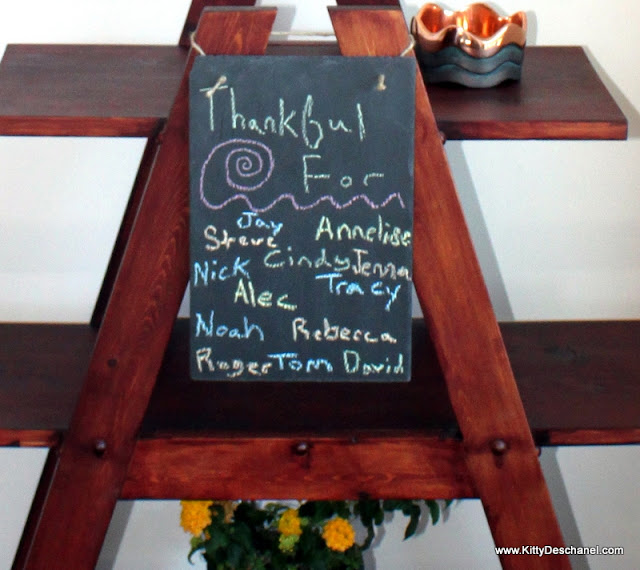 Thankful
For
Jay
Steve Annelise
Cindy Jenna
Nick Tracy
Alec
Noah Rebecca
Roger Tom David
www.KittyDeschanel.com